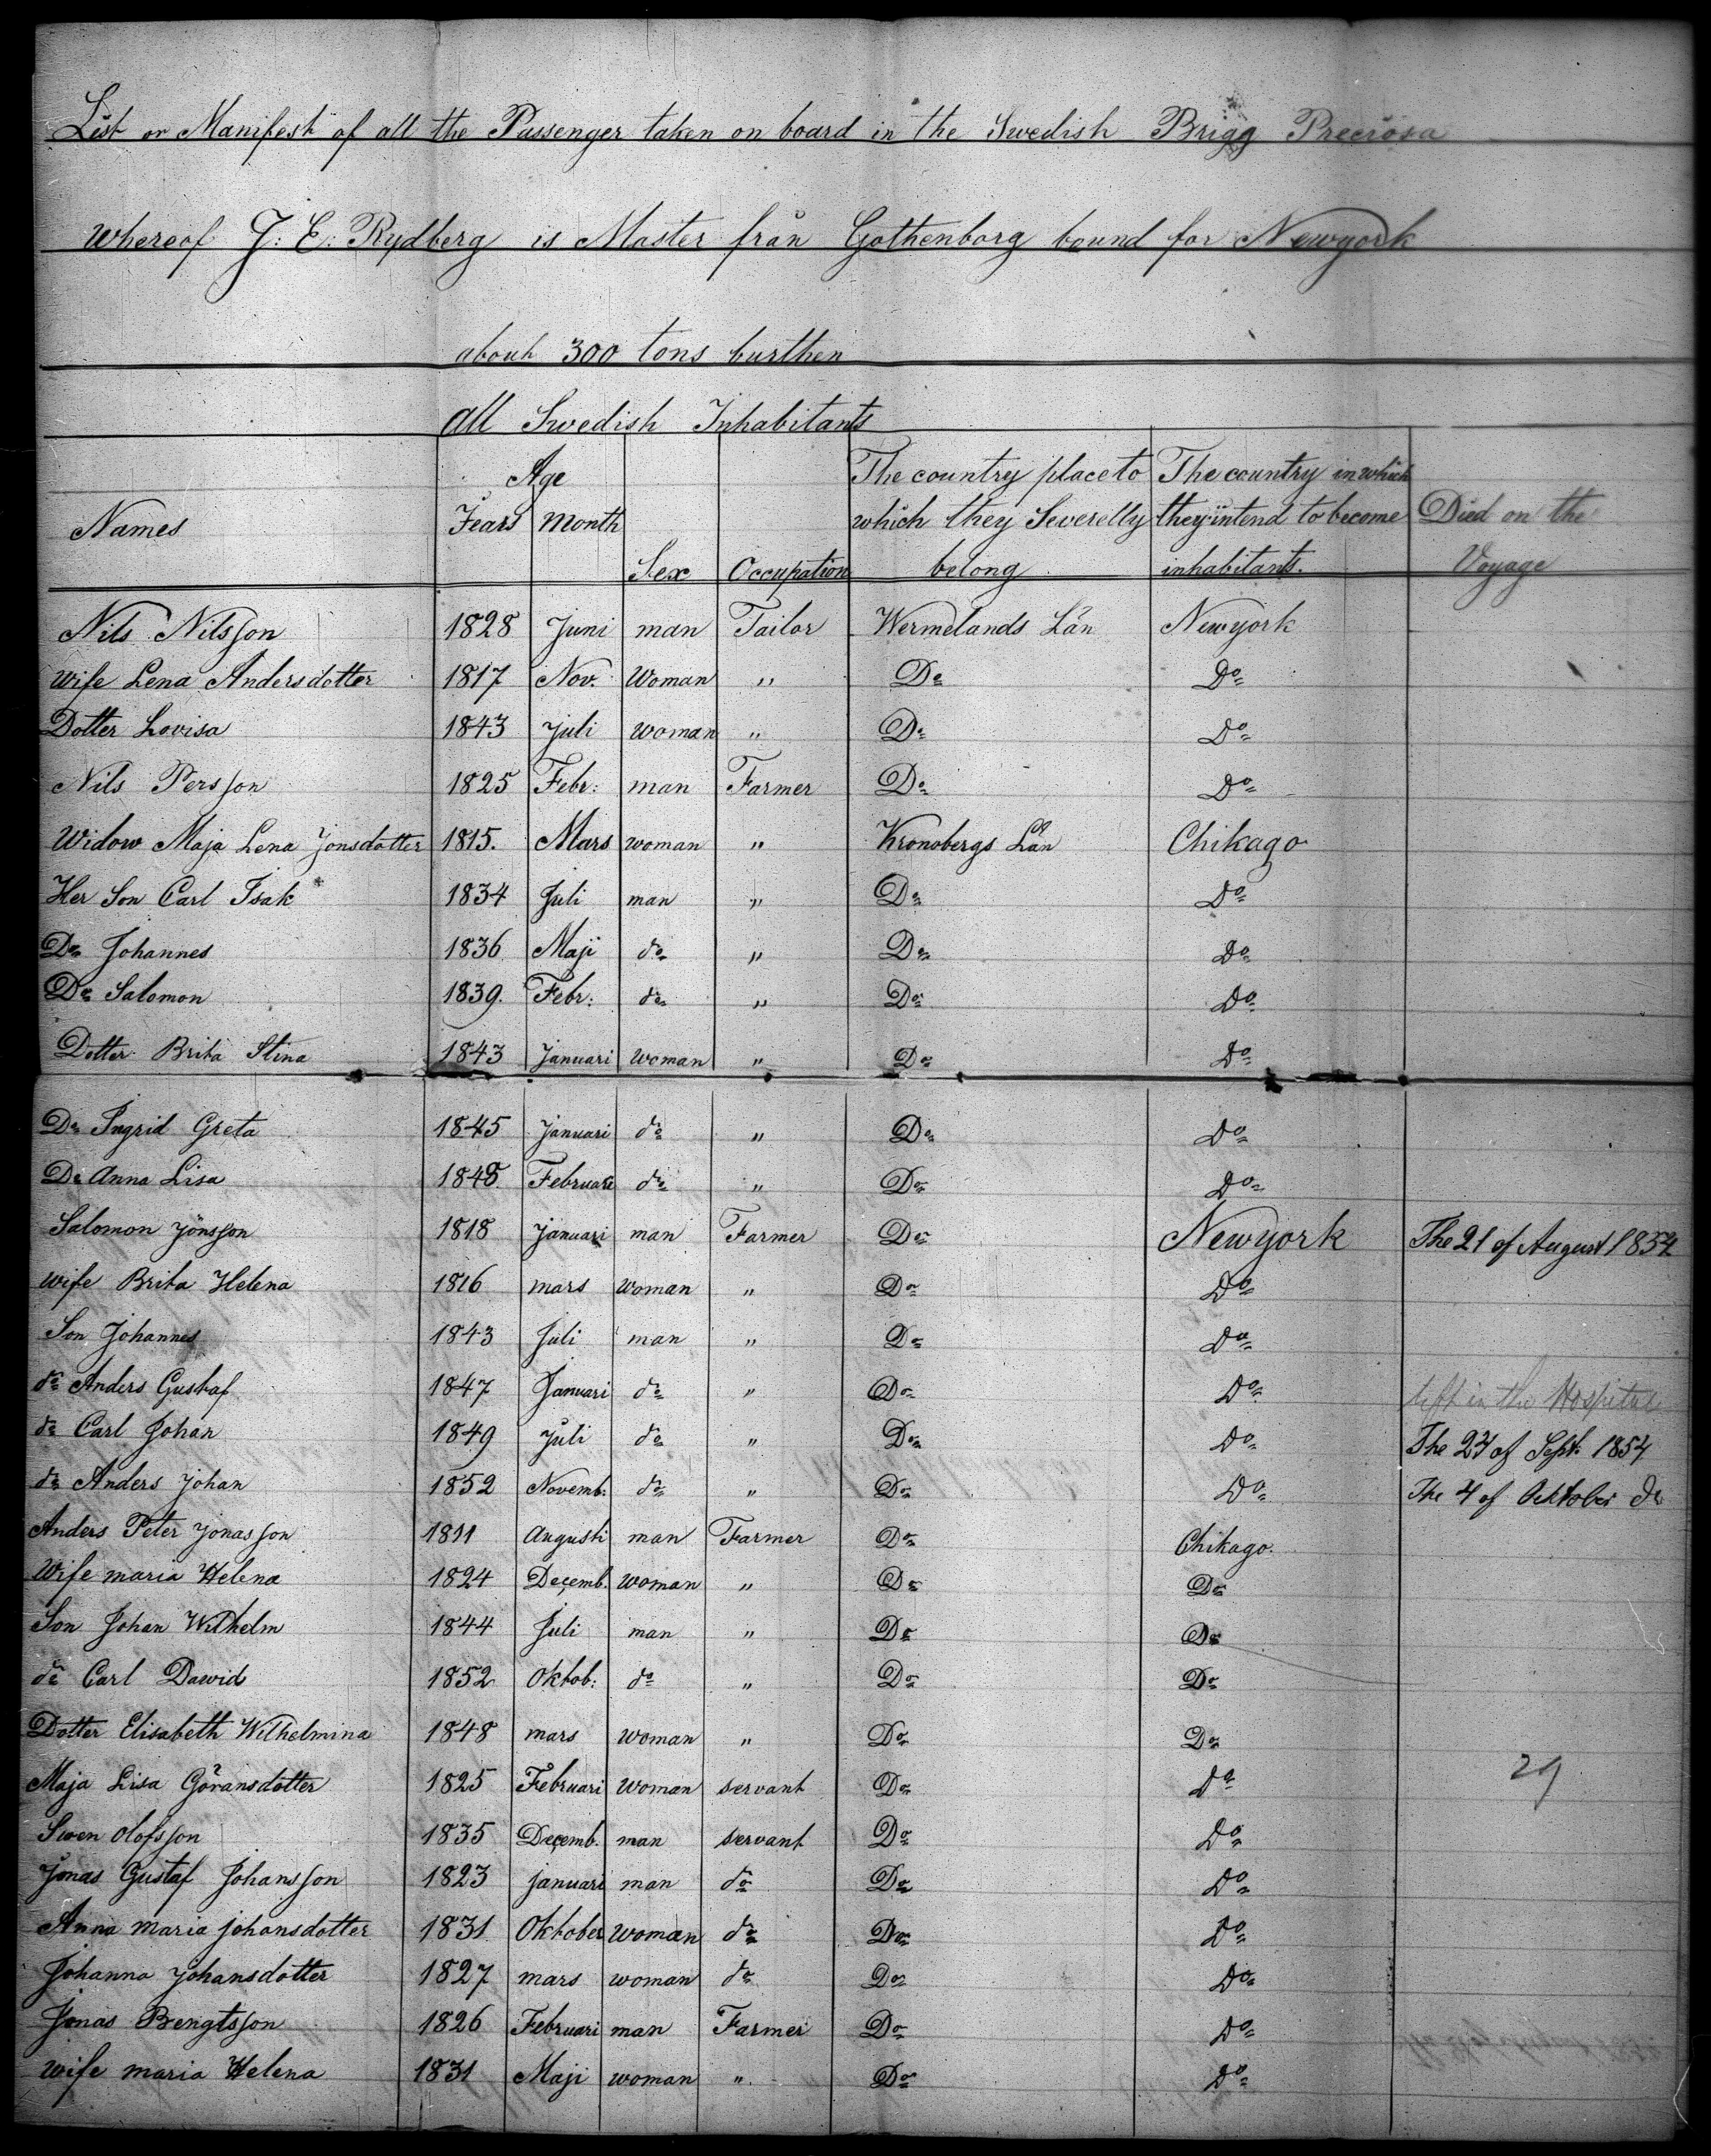 List or Manifest of all the Passenger taken on board in the Swedish Brigg Preciosa
whereof J: E: Rydberg is Master från Gothenborg bound for Newyork
about 300 tons burthen
all Swedish Inhabitants
Names Age Years Month Sex Occupation The country place to which they Severelly belong The country in which they intend to become inhabitants. Died on the Voyage
Nils Nilsson 1828 Juni man Tailor Wermelands Län Newyork
Wife Lena Andersdotter 1817 Nov. Woman " Do Do
Dotter Lovisa 1843 Juli woman " Do Do
Nils Persson 1825 Febr: man Farmer Do Do
Widow Maja Lena Jonsdotter 1815. Mars woman " Kronobergs Län Chikago
Her Son Carl Isak 1834 Juli man " Do Do
Do Johannes 1836 Maji do " Do Do
Do Salomon 1839. Febr: do " Do Do
Dotter Brita Stina 1843 Januari woman " Do Do
Do Ingrid Greta 1845 Januari do " Do Do
Do Anna Lisa 1848 Februari do " Do Do
Salomon Jönsson 1818 Januari man Farmer Do Newyork The 21 of August 1854
Wife Brita Helena 1816 mars woman " Do Do
Son Johannes 1843 Juli man " Do Do
do Anders Gustaf 1847 Januari do " Do Do left in the Hospital
do Carl Johan 1849 Juli do " Do Do The 24 of Sept. 1854
do Anders Johan 1852 Novemb: do " Do Do The 4 of Oktober do
Anders Peter Jonasson 1811 Augusti man Farmer Do Chikago.
Wife maria Helena 1824 Decemb. woman " Do Do
Son Johan Wilhelm 1844 Juli man " Do Do
do Carl Dawid 1852 Oktob: do " Do Do
Dotter Elisabeth Wilhelmina 1848 mars woman " Do Do
Maja Lisa Göransdotter 1825 Februari woman servant Do Do 29
Swen Olofsson 1835 Decemb. man servant Do Do
Jonas Gustaf Johansson 1823 januari man do Do Do
Anna maria johansdotter 1831 Oktober woman do Do Do
Johanna Johansdotter 1827 mars woman do Do Do
Jonas Bengtsson 1826 Februari man Farmer Do Do
wife maria Helena 1831 Maji woman " Do Do